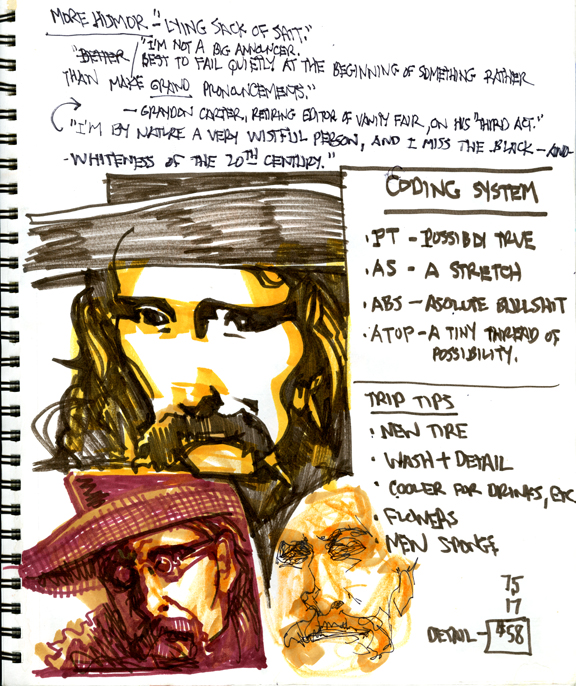 MORE HUMOR - "LYING SACK OF SAIT."
"BETTER / "I'M NOT A BIG ANNOUNCER.
BEST TO FAIL QUIETLY AT THE BEGINNING OF SOMETHING RATHER
THAN MAKE GRAND PRONOUNCEMENTS."
— GRAYDON CARTER, RETIRING EDITOR OF VANITY FAIR, ON HIS "THIRD ACT."
"I'M BY NATURE A VERY WISTFUL PERSON, AND I MISS THE BLACK - AND
- WHITENESS OF THE 20TH CENTURY."
CODING SYSTEM
• PT - POSSIBLY TRUE
• AS - A STRETCH
• ABS - ASOLUTE BULLSHIT
• ATOP - A TINY THREAD OF
POSSIBILITY.
TRIP TIPS
• NEW TIRE
• WASH + DETAIL
• COOLER FOR DRINKS, ETC
• FLOWERS
• NEW SPONGE
75
17
DETAIL - $58